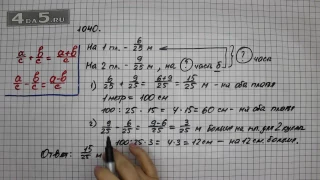 4da5.ru
1040.
a/c + b/c = a+b/c
a/c - b/c = a-b/c
На 1 пл. - 6/25 м
На 2 пл. - 9/25 м, на ? часа б
? часа
1) 6/25 + 9/25 = 6+9/25 = 15/25 м - на оба платья
1 метр = 100 см
100 : 25 · 15 = 4 · 15 = 60 см - на оба платья
2) 9/25 - 6/25 = 9-6/25 = 3/25 м больше на пл. для 2 кукла
100 : 25 · 3 = 4 · 3 = 12 см - на 12 см. больше.
Ответ: 15/25 м